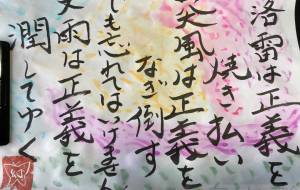 落雷は正義を
焼き払い
突風は正義を
なぎ倒す
ても忘れてはいけません
雨は正義を
潤してゆく